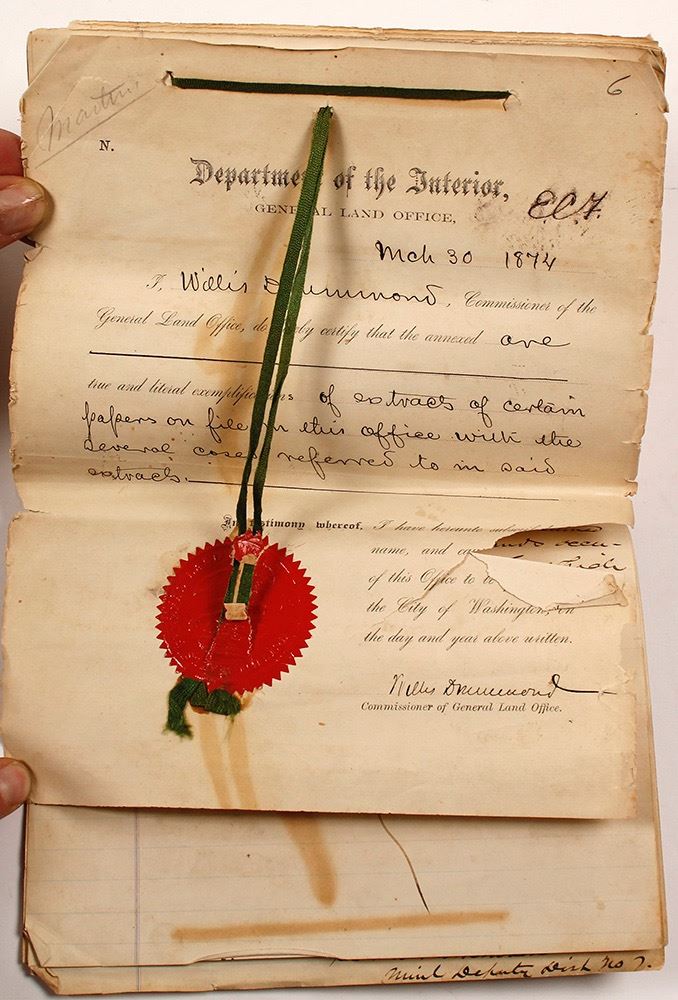 6
Martin
N.
Department of the Interior,
GENERAL LAND OFFICE,
Mch 30 1874
I, Willis Drummond, Commissioner of the
General Land Office, do hereby certify that the annexed are
true and literal exemplifications of extracts of certain
papers on file in this office with the
several cases referred to in said
extracts.
In testimony whereof, I have hereunto
name, and
of this Office to
the City of Washington, on
the day and year above written.
Willis Drummond
Commissioner of General Land Office.
Minl Deputy Dist No 7.